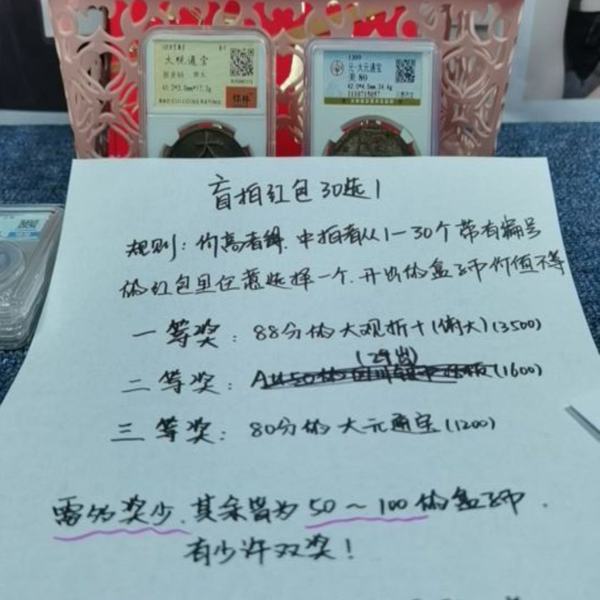 大观通宝
元·大元通宝
美80
盲拍红包30选1
规则：价高者得.中拍者从1一30个带有编号
的红包里任意选择一个.开出的盒子币价值不等
一等奖：88分的大观折十(俏大)(3500)
(29出)
二等奖：(1600)
三等奖：80分的大元通宝(1200)
雷多奖少.其余皆为50～100的盒子币.
有少许双奖！